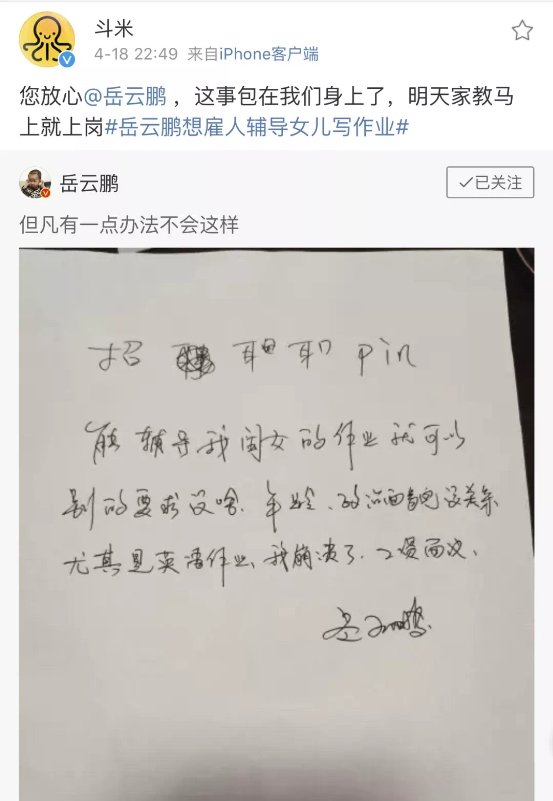 斗米
4-18 22:49 来自iPhone客户端
您放心@岳云鹏 ，这事包在我们身上了，明天家教马
上就上岗#岳云鹏想雇人辅导女儿写作业#
岳云鹏
✓已关注
但凡有一点办法不会这样
招 pin
能辅导我闺女的作业就可以
别的要求没啥.年龄、政治面貌没关系
尤其是英语作业、我崩溃了.工资面议、
岳云鹏